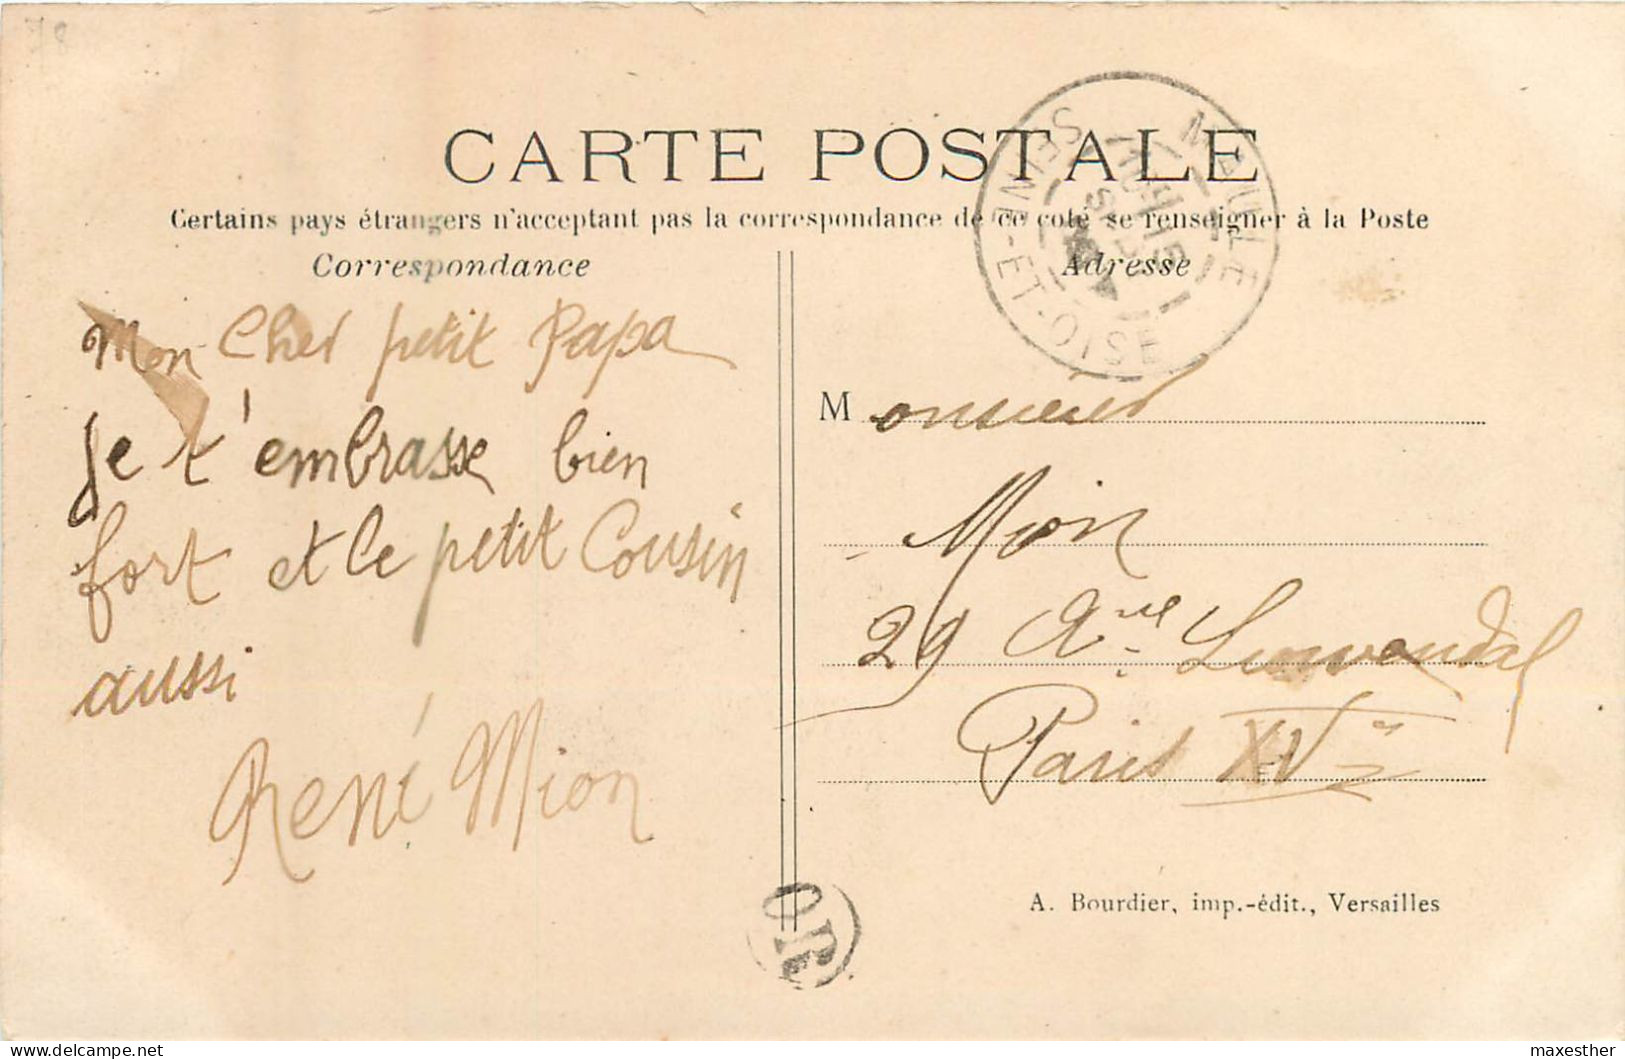 CARTE POSTALE
Certains pays étrangers n'acceptant pas la correspondance de ce coté se renseigner à la Poste
Correspondance
Adresse
MAULE
SEINE-ET-OISE
Mon Cher petit Papa
je t'embrasse bien
fort et le petit Cousin
aussi
René Mion
Monsieur
Mion
29 Ave
Paris XVe
A. Bourdier, imp.-édit., Versailles
OL
Delcampe.net
maxesther